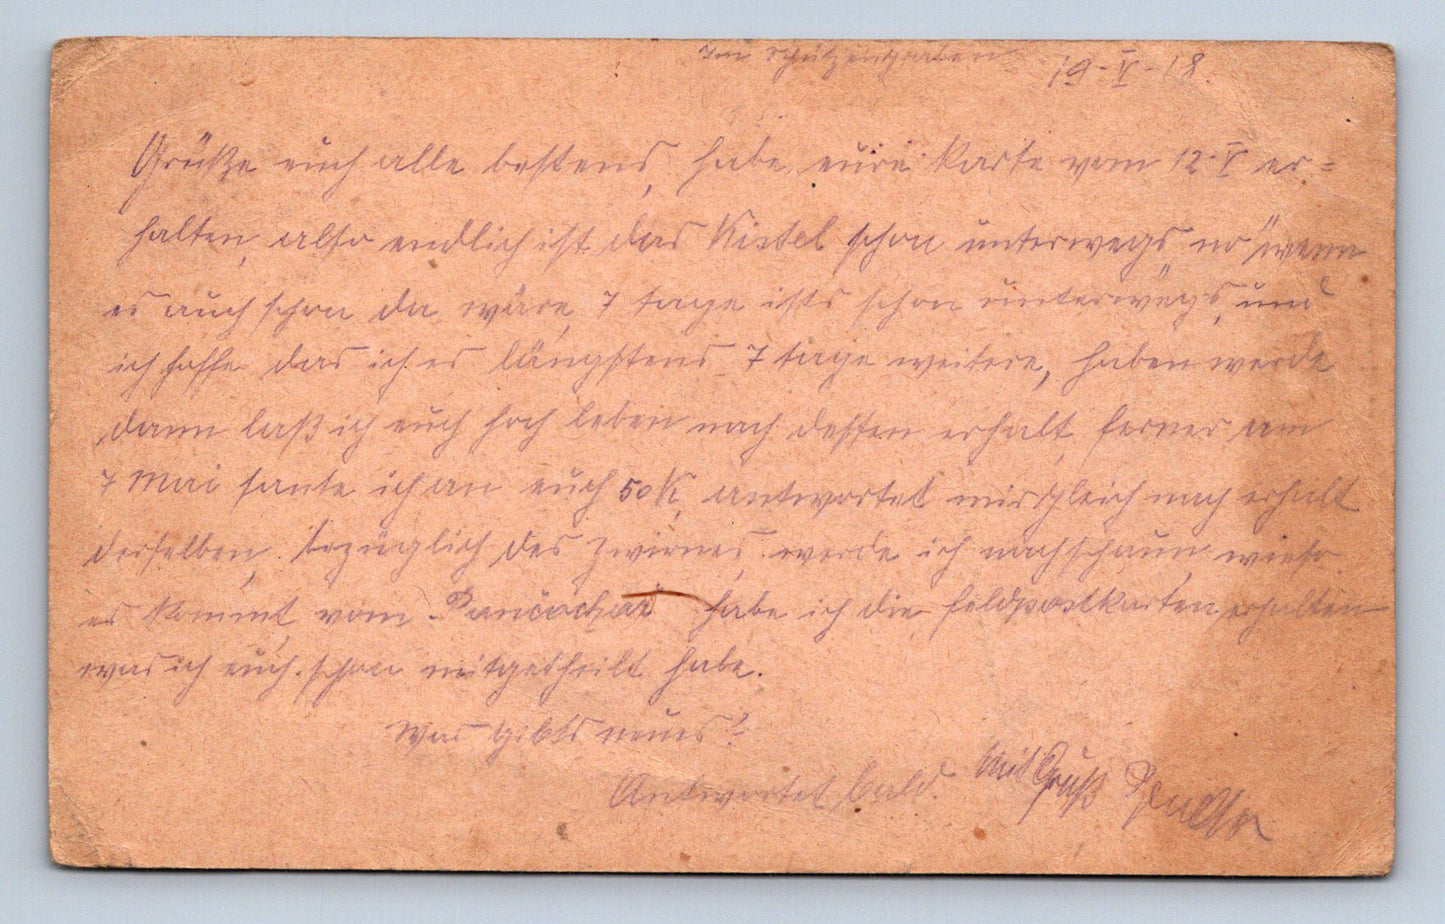 Im Schützengraben 19-V-18.
Grüße euch alle bestens, habe eure Karte vom 12-V er=
halten, also endlich ist das Kistel schon unterwegs, no wenn
es auch schon da wäre, 7 tage ists schon unterwegs, und
ich hoffe das ich es längstens 7 tage weitere, haben werde
dann laß ich euch hoch leben nach dessen erhalt, ferner am
7 Mai sante ich an euch 50 K, antwortet mir gleich nach erhalt
derselben, bezüglich des Zwirnes, werde ich nachschaun, wieso
es kommt, vom habe ich die feldpostkarten, erhalten
was ich euch schon mitgetheilt habe.
Was gibts neues?
Antwortet bald. Mit Gruß